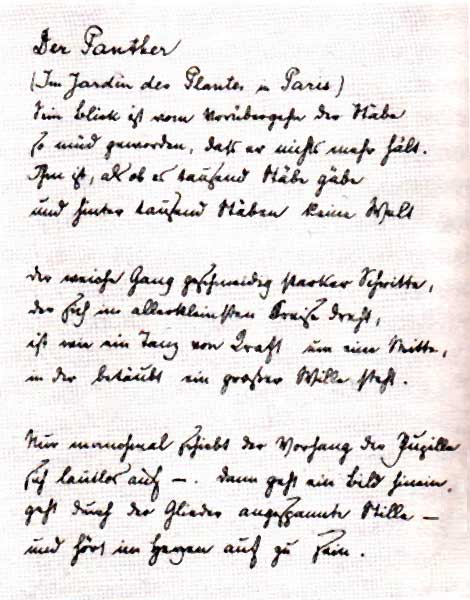 Der Panther
(Im Jardin des Plantes in Paris)
Sein Blick ist vom Vorübergehn der Stäbe
so müd geworden, daß er nichts mehr hält.
Ihm ist, als ob es tausend Stäbe gäbe
und hinter tausend Stäben keine Welt

der weiche Gang geschmeidig starker Schritte,
der sich im allerkleinsten Kreise dreht,
ist wie ein Tanz von Kraft um eine Mitte,
in der betäubt ein großer Wille steht.

Nur manchmal schiebt der Vorhang der Pupille
sich lautlos auf –. Dann geht ein Bild hinein,
geht durch der Glieder angespannte Stille –
und hört im Herzen auf zu sein.